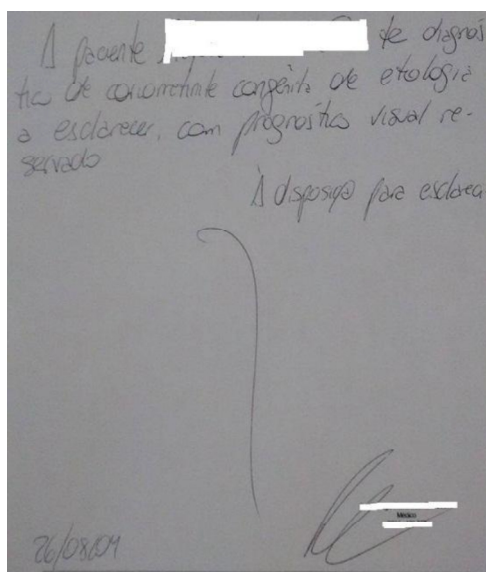 A paciente de diagnós
tico de coriorretinite congênita de etiologia
a esclarecer, com prognóstico visual re-
servado
À disposição para esclarec
Médico
26/08/09